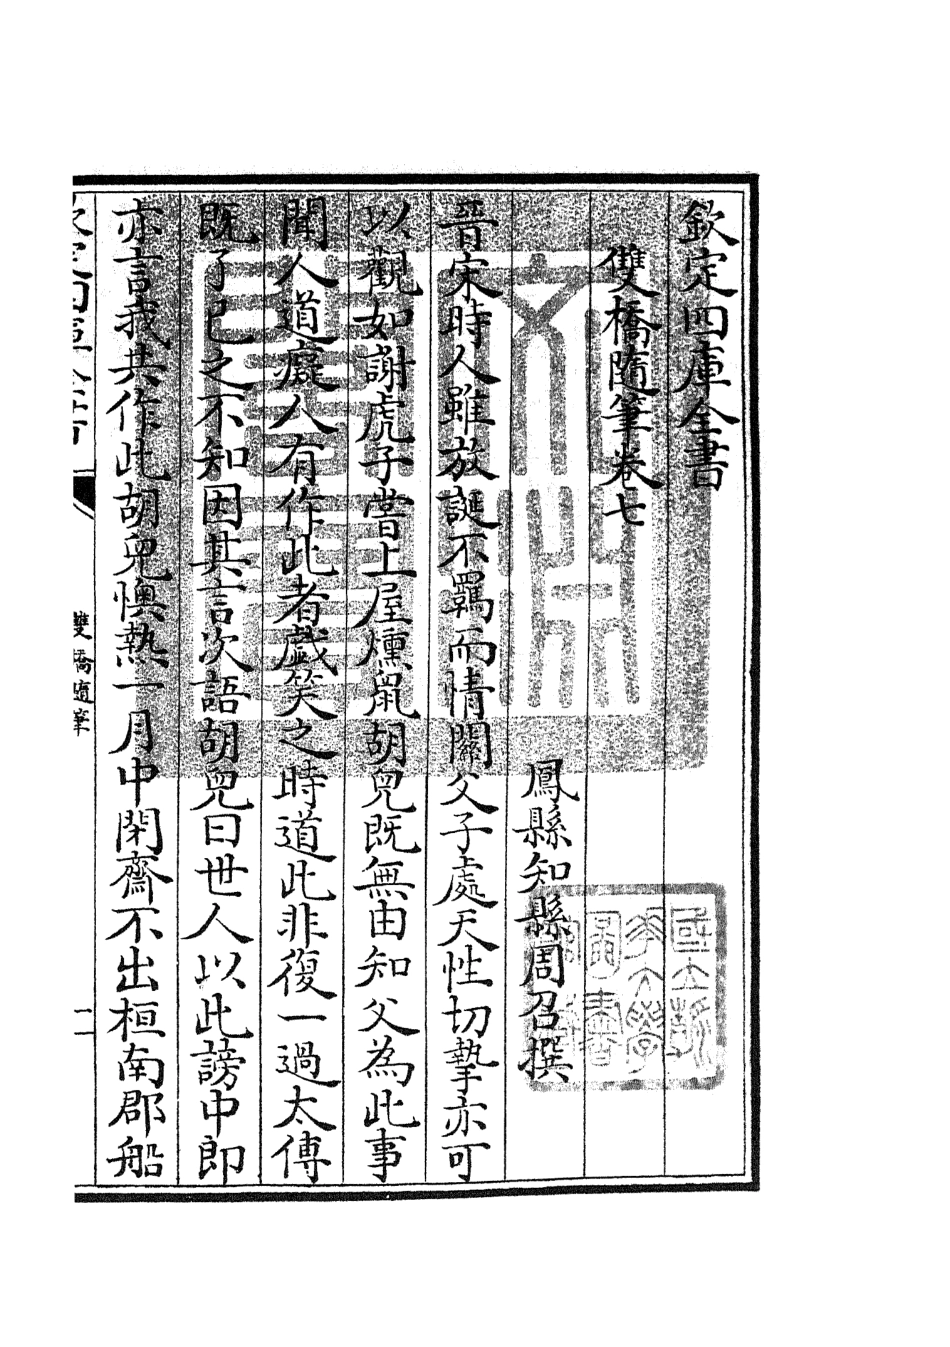 欽定四庫全書
雙橋隨筆卷七
鳳縣知縣周召撰
晉宋時人雖放誕不羈而情關父子處天性切摯亦可
以觀如謝虎子嘗上屋燻鼠胡兒既無由知父為此事
聞人道癡人有作此者戲笑之時道此非復一過太傅
既了己之不知因其言次語胡兒曰世人以此謗中郎
亦言我共作此胡兒懊熱一月中閉齋不出桓南郡船
雙橋隨筆
一
國立
大學
圖書